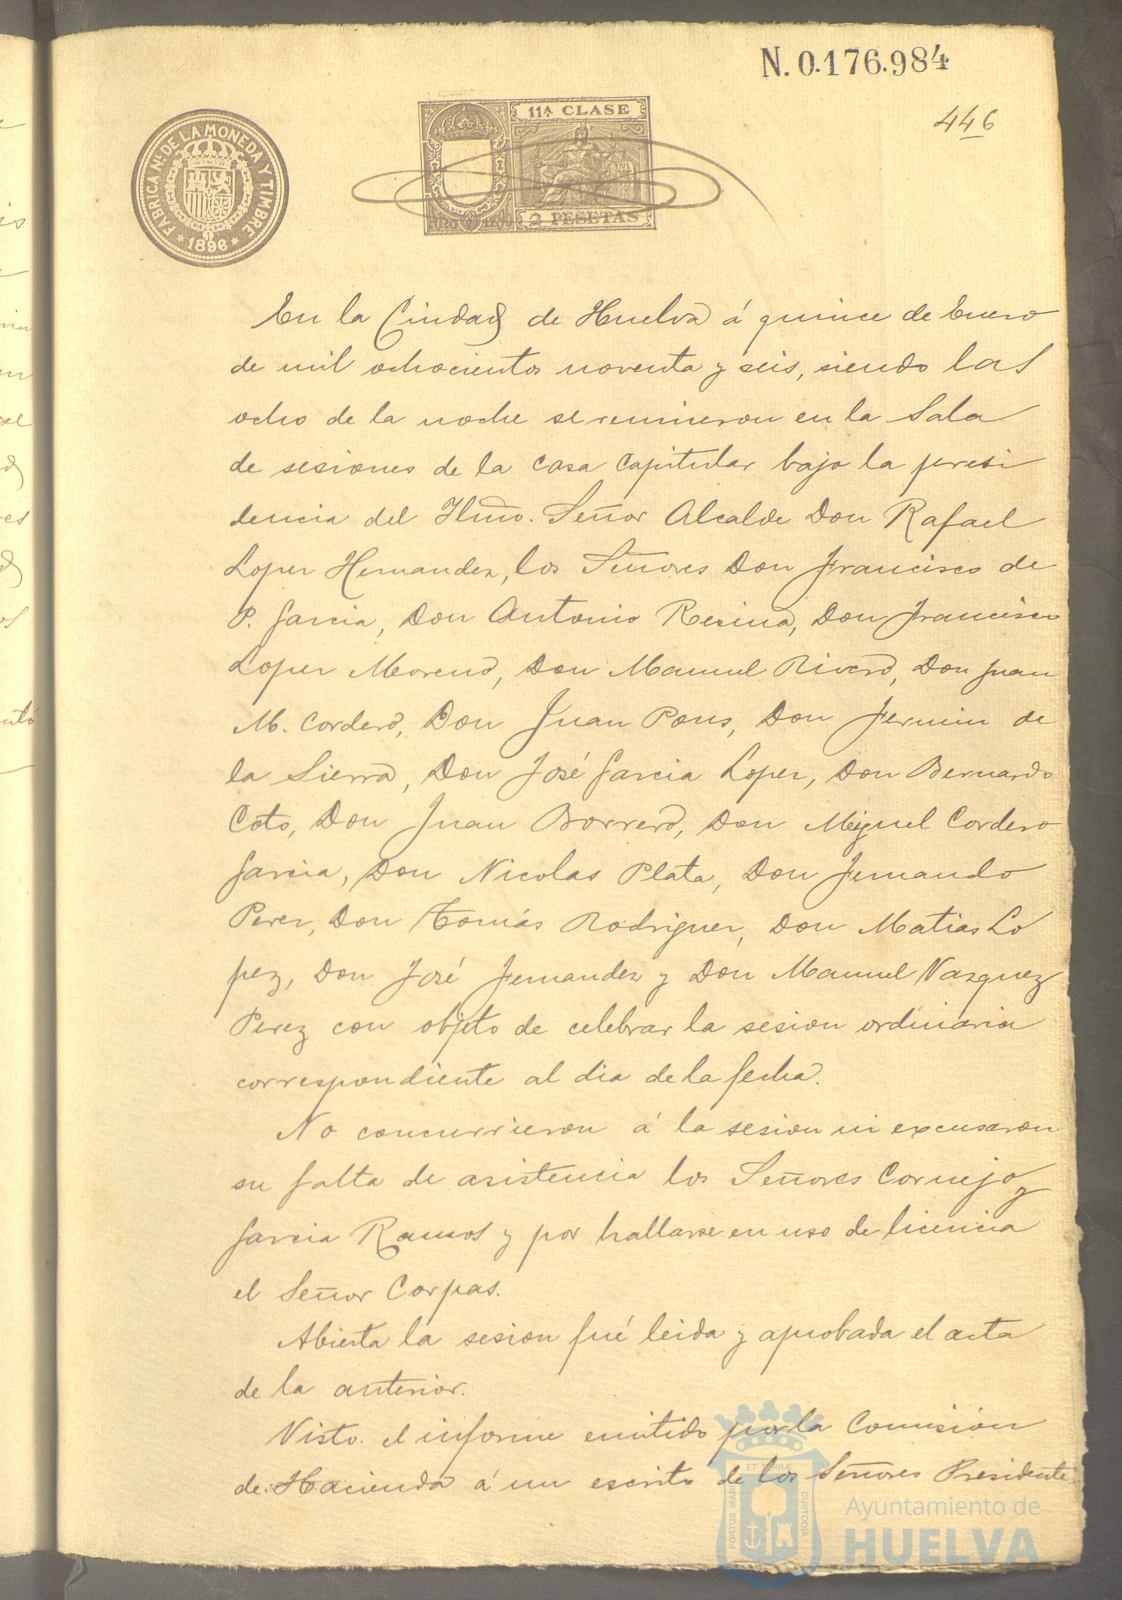 N. 0.176.984
446
FÁBRICA Nal. DE LA MONEDA Y TIMBRE
* 1896 *
11ª CLASE
2 PESETAS
En la Ciudad de Huelva á quince de Enero
de mil ochocientos noventa y seis, siendo las
ocho de la noche se reunieron en la Sala
de sesiones de la casa capitular bajo la presi
dencia del Yltmo. Señor Alcalde Don Rafael
Lopez Hernandez, los Señores Don Francisco de
P. Garcia, Don Antonio Resina, Don Francisco
Lopez Moreno, Don Manuel Rivero, Don Juan
M. Cordero, Don Juan Pons, Don Fermin de
la Sierra, Don José Garcia Lopez, Don Bernardo
Coto, Don Juan Borrero, Don Miguel Cordero
Garcia, Don Nicolas Plata, Don Fernando
Perez, Don Tomás Rodriguez, Don Matias Lo
pez, Don José Fernandez y Don Manuel Vazquez
Perez con objeto de celebrar la sesion ordinaria
correspondiente al dia de la fecha.
No concurrieron á la sesion ni excusaron
su falta de asistencia los Señores Cornejo y
Garcia Ramos y por hallarse en uso de licencia
el Señor Corpas.
Abierta la sesion fué leida y aprobada el acta
de la anterior.
Visto el informe emitido por la Comisión
de Hacienda á un escrito de los Señores Presidente
PORTUS MARIS ET TERRÆ CUSTODIA
Ayuntamiento de
HUELVA